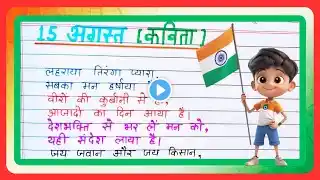 15 अगस्त (कविता)
लहराया तिरंगा प्यारा,
सबका मन हर्षाया
वीरों की कुर्बानी से
आजादी का दिन आया है।
देशभक्ति से भर लें मन को,
यही संदेश लाया है।
जय जवान और जय किसान,